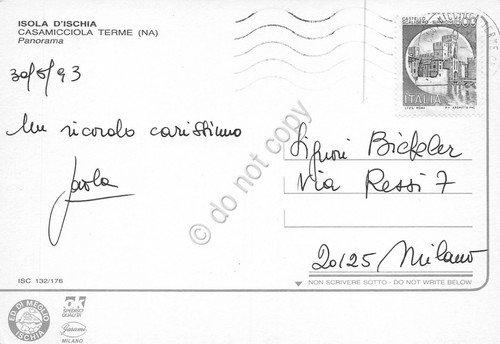 ISOLA D'ISCHIA
CASAMICCIOLA TERME (NA)
Panorama
30/8/93
Un ricordo carissimo
Paola
CASTELLO
SCALIGERO · SIRMIONE
ITALIA
Signori Bickler
Via Ressi 7
20125 Milano
ISC 132/176
NON SCRIVERE SOTTO - DO NOT WRITE BELOW
ED. DI MEGLIO
ISCHIA
GK
SPEDISCI
QUALITÀ
Garami
MILANO
© do not copy